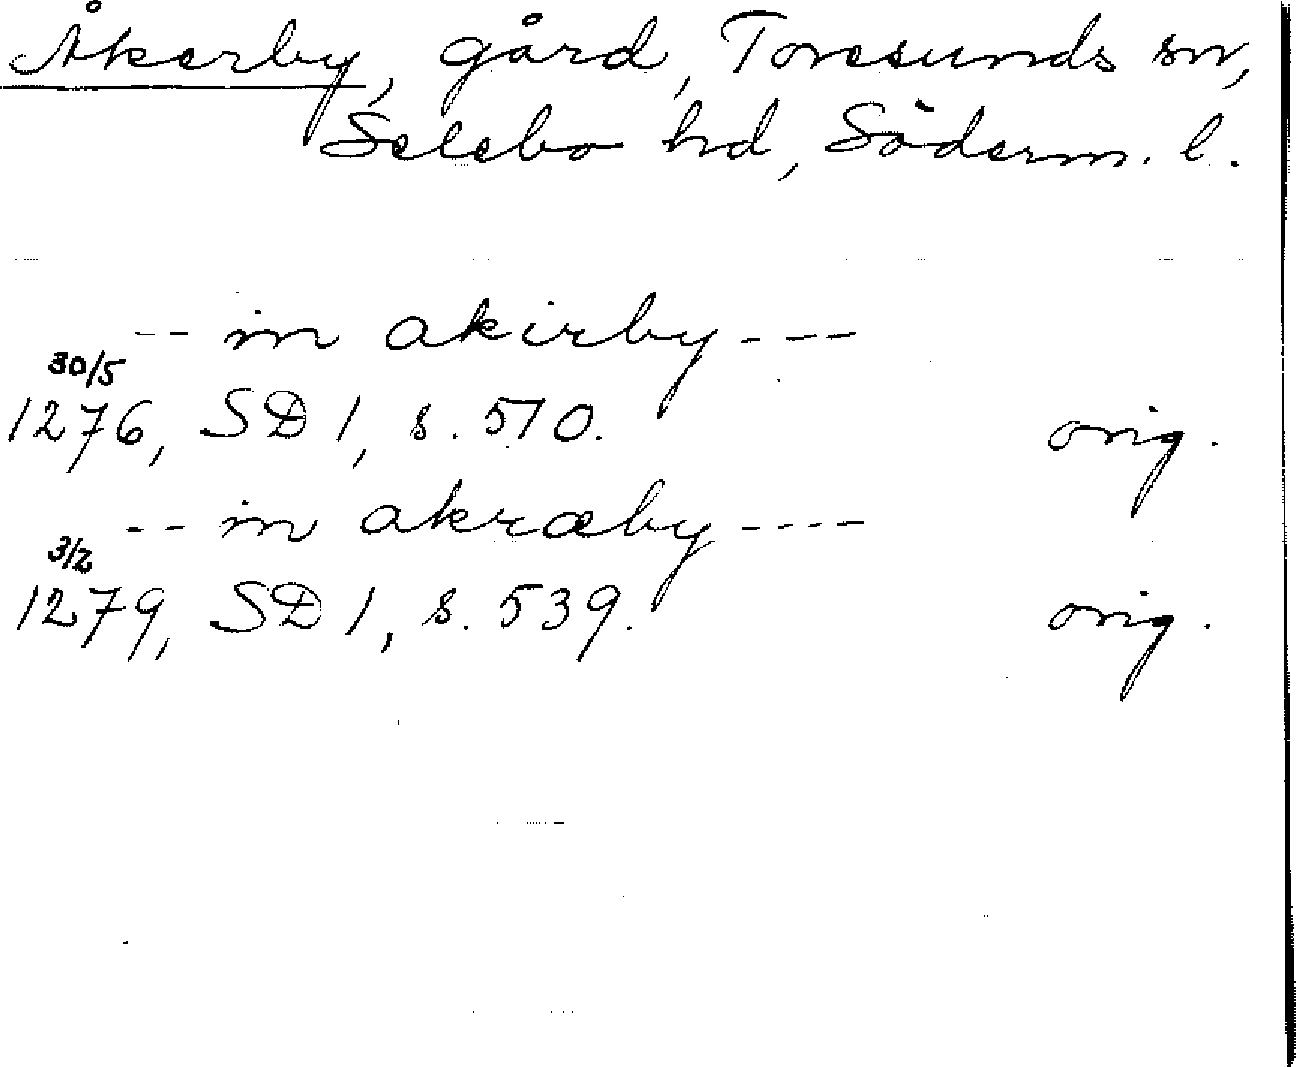 Åkerby, gård, Toresunds sn,
Selebo hd, Söderm. l.
-- in akirby ---
30/5
1276, SD 1, s. 570. orig.
-- in akræby ----
3/2
1279, SD 1, s. 539. orig.